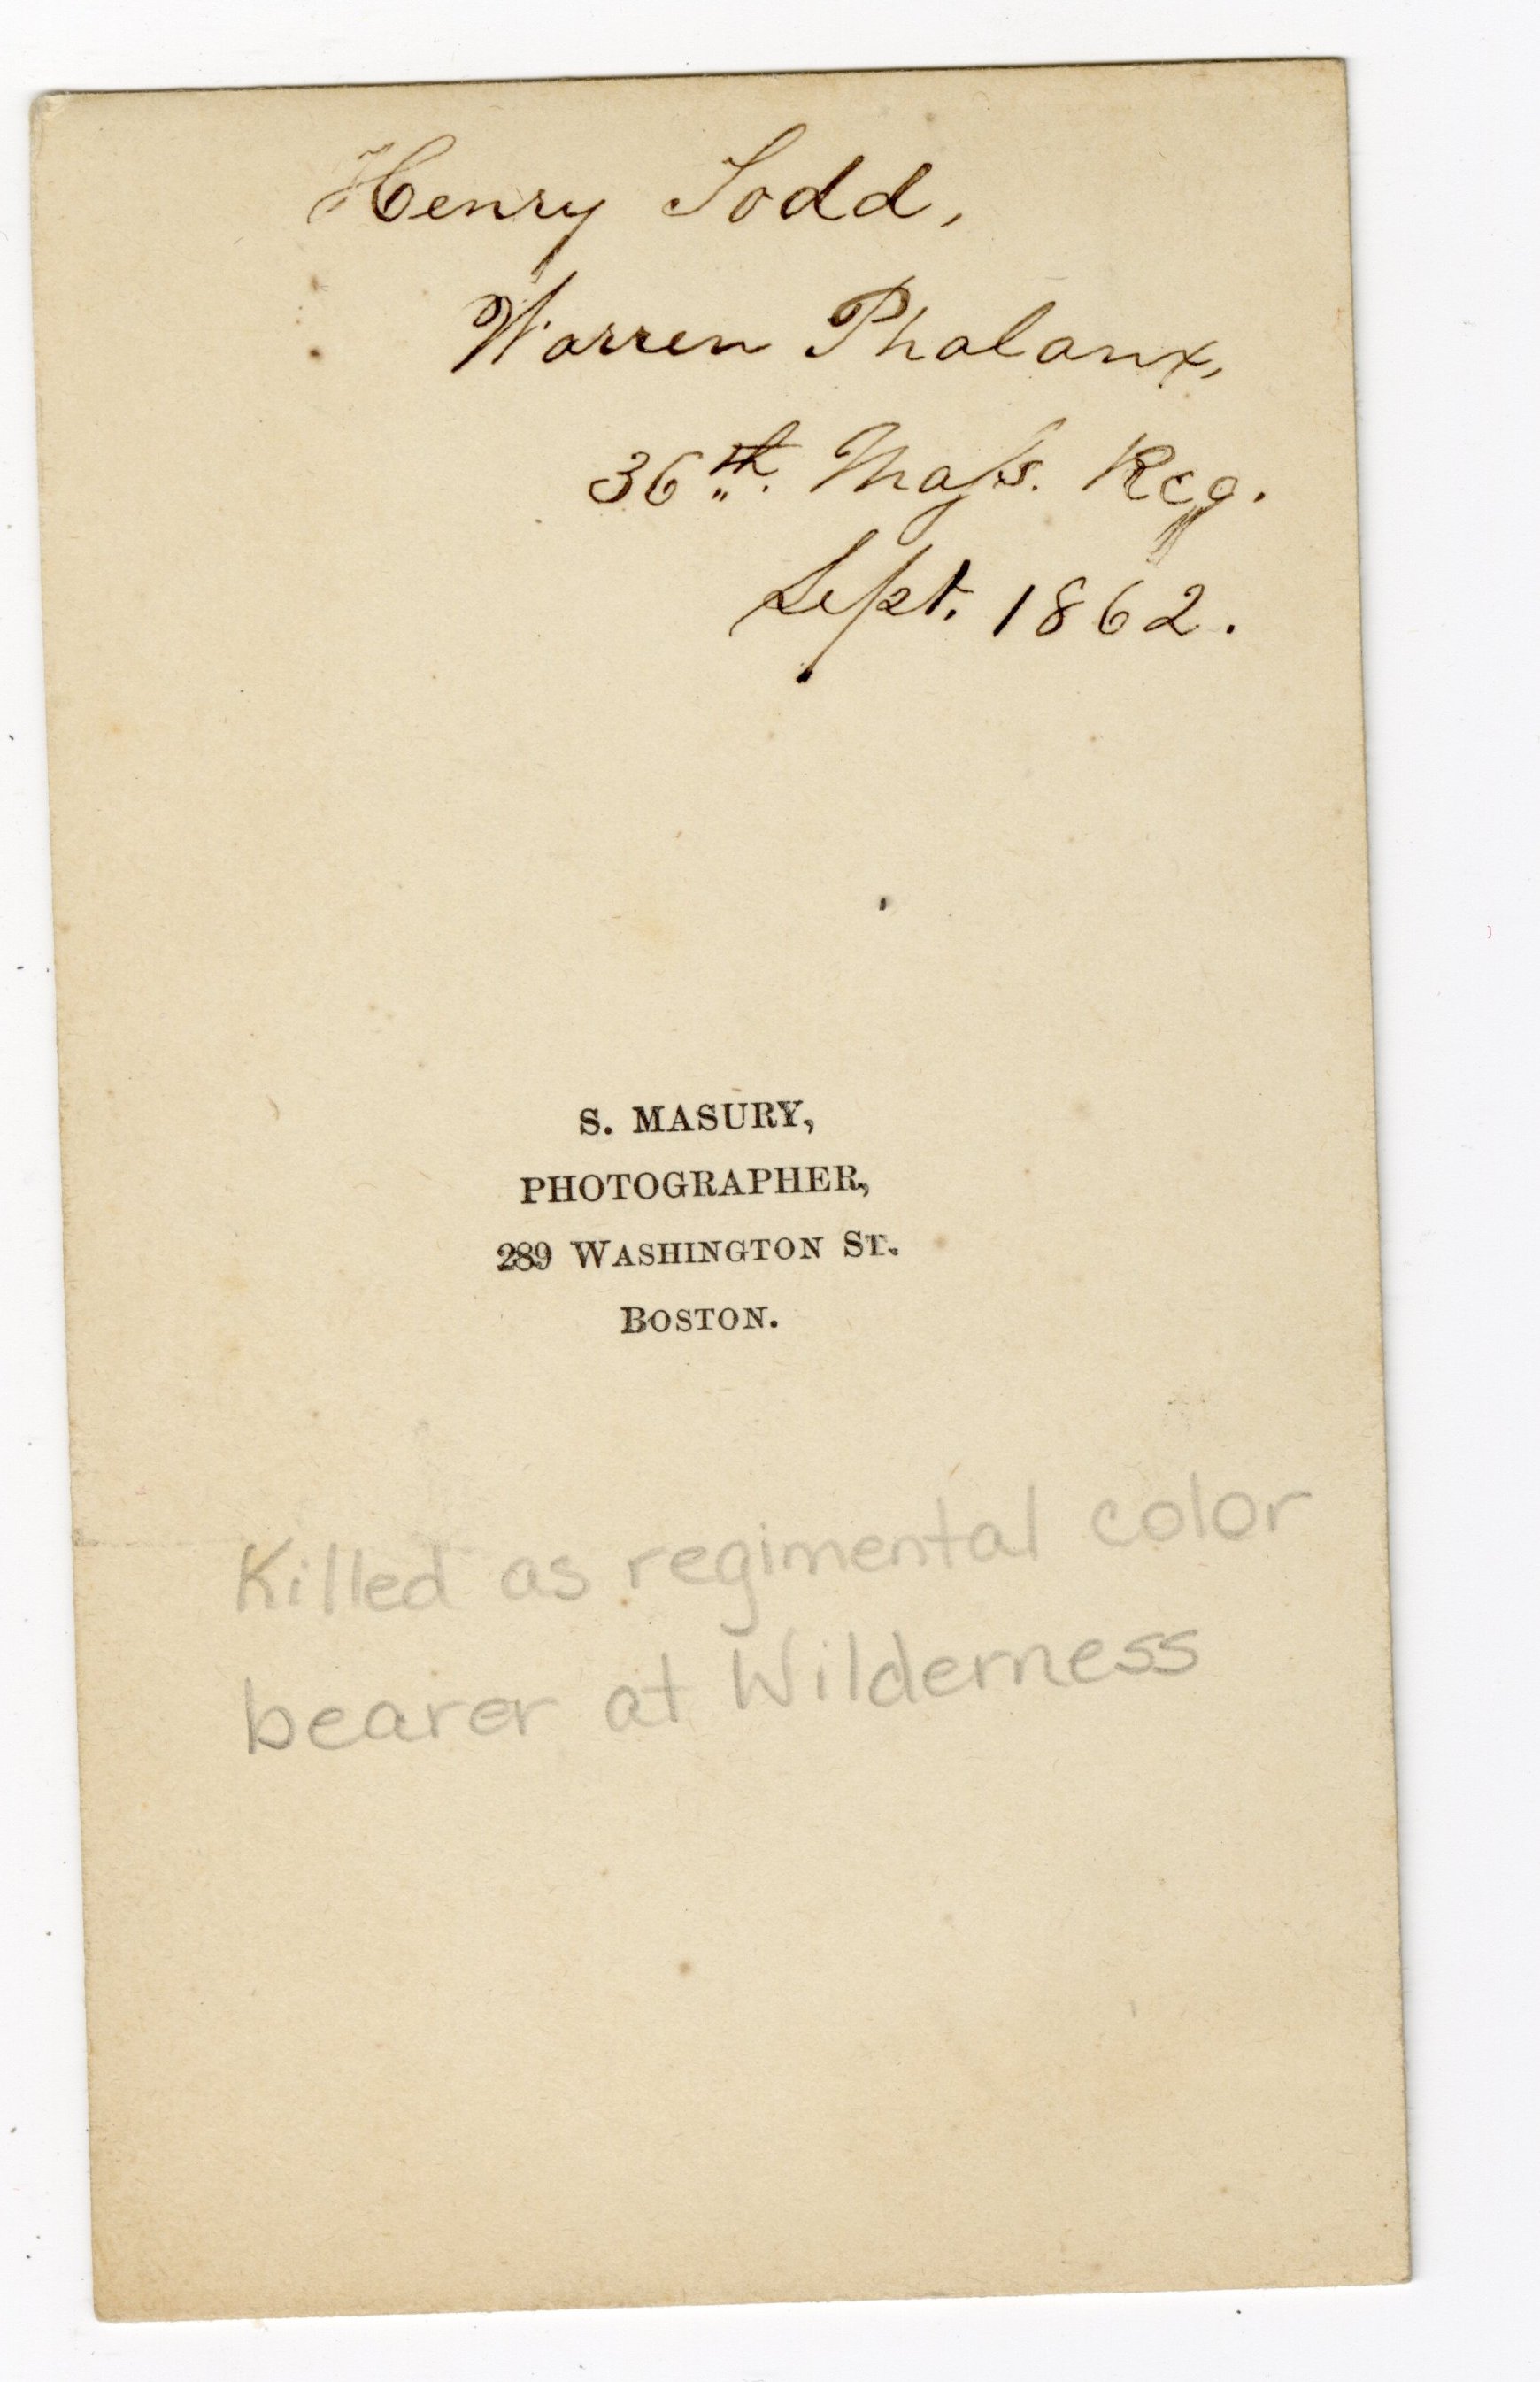 Henry Todd,
Warren Phalanx,
36th. Mass. Reg.
Sept. 1862.
S. MASURY,
PHOTOGRAPHER,
289 WASHINGTON ST.
BOSTON.
Killed as regimental color
bearer at Wilderness